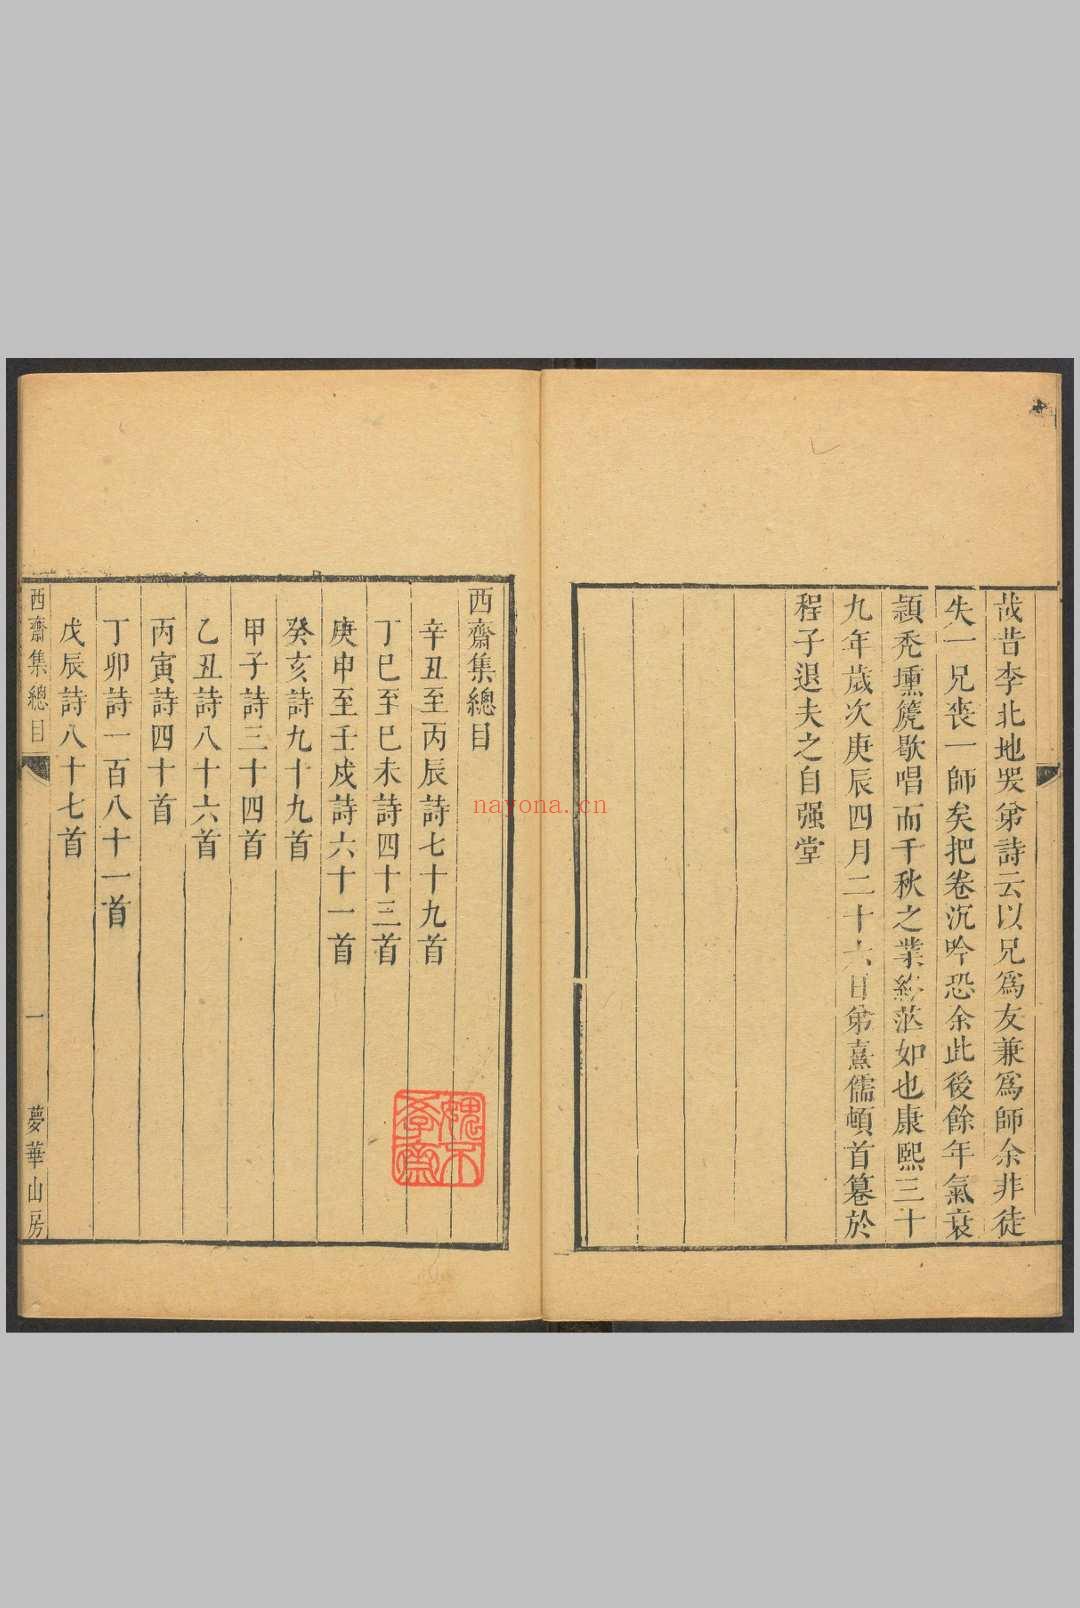 哉昔李北地哭弟詩云以兄爲友兼爲師余非徒
失一兄丧一師矣把卷沉吟恐余此後餘年氣衰
頴秃壎箎歇唱而千秋之業紗茫如也康熙三十
九年歲次庚辰四月二十六日弟熹儒頓首篹於
程子退夫之自强堂
西齋集總目
辛丑至丙辰詩七十九首
丁巳至巳未詩四十三首
庚申至壬戌詩六十一首
癸亥詩九十九首
甲子詩三十四首
乙丑詩八十六首
丙寅詩四十首
丁卯詩一百八十一首
戊辰詩八十七首
西齋集總目 一 夢華山房
nayona.cn